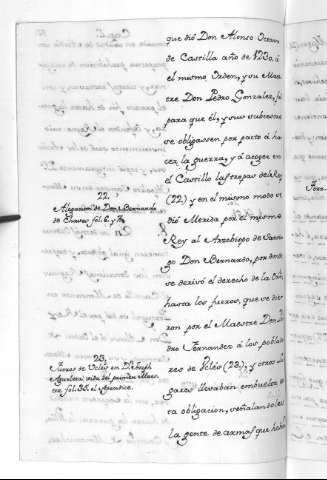 que dió Don Alonso Octavo
de Castilla año de 1170. á
el mismo Orden, y su Maes
tre Don Pedro Gonzalez, fue
para que él, y sus subcesores
se obligassen por pacto á ha-
cer la guerra, y á acoger en
el Castillo las tropas del Rey
(22) y en el mismo modo se
dió Merida por el mismo
Rey al Arzobispo de Santia
go Don Bernardo, por donde
se derivó el derecho de la Orden
hasta los fueros, que se die-
ron por el Maestre Don Pe
dro Fernandez á los poblado
res de Uclés (23), y otros lu
gares llevaban embuelta es
ta obligacion, señalandoles
la gente de armas que habi
22.
Alegacion de Don Bernardo
de Chaves fol. 6. y 7.
23.
Fueros de Uclés en
vida del primer Maes
tre fol. 35. el Apendice.